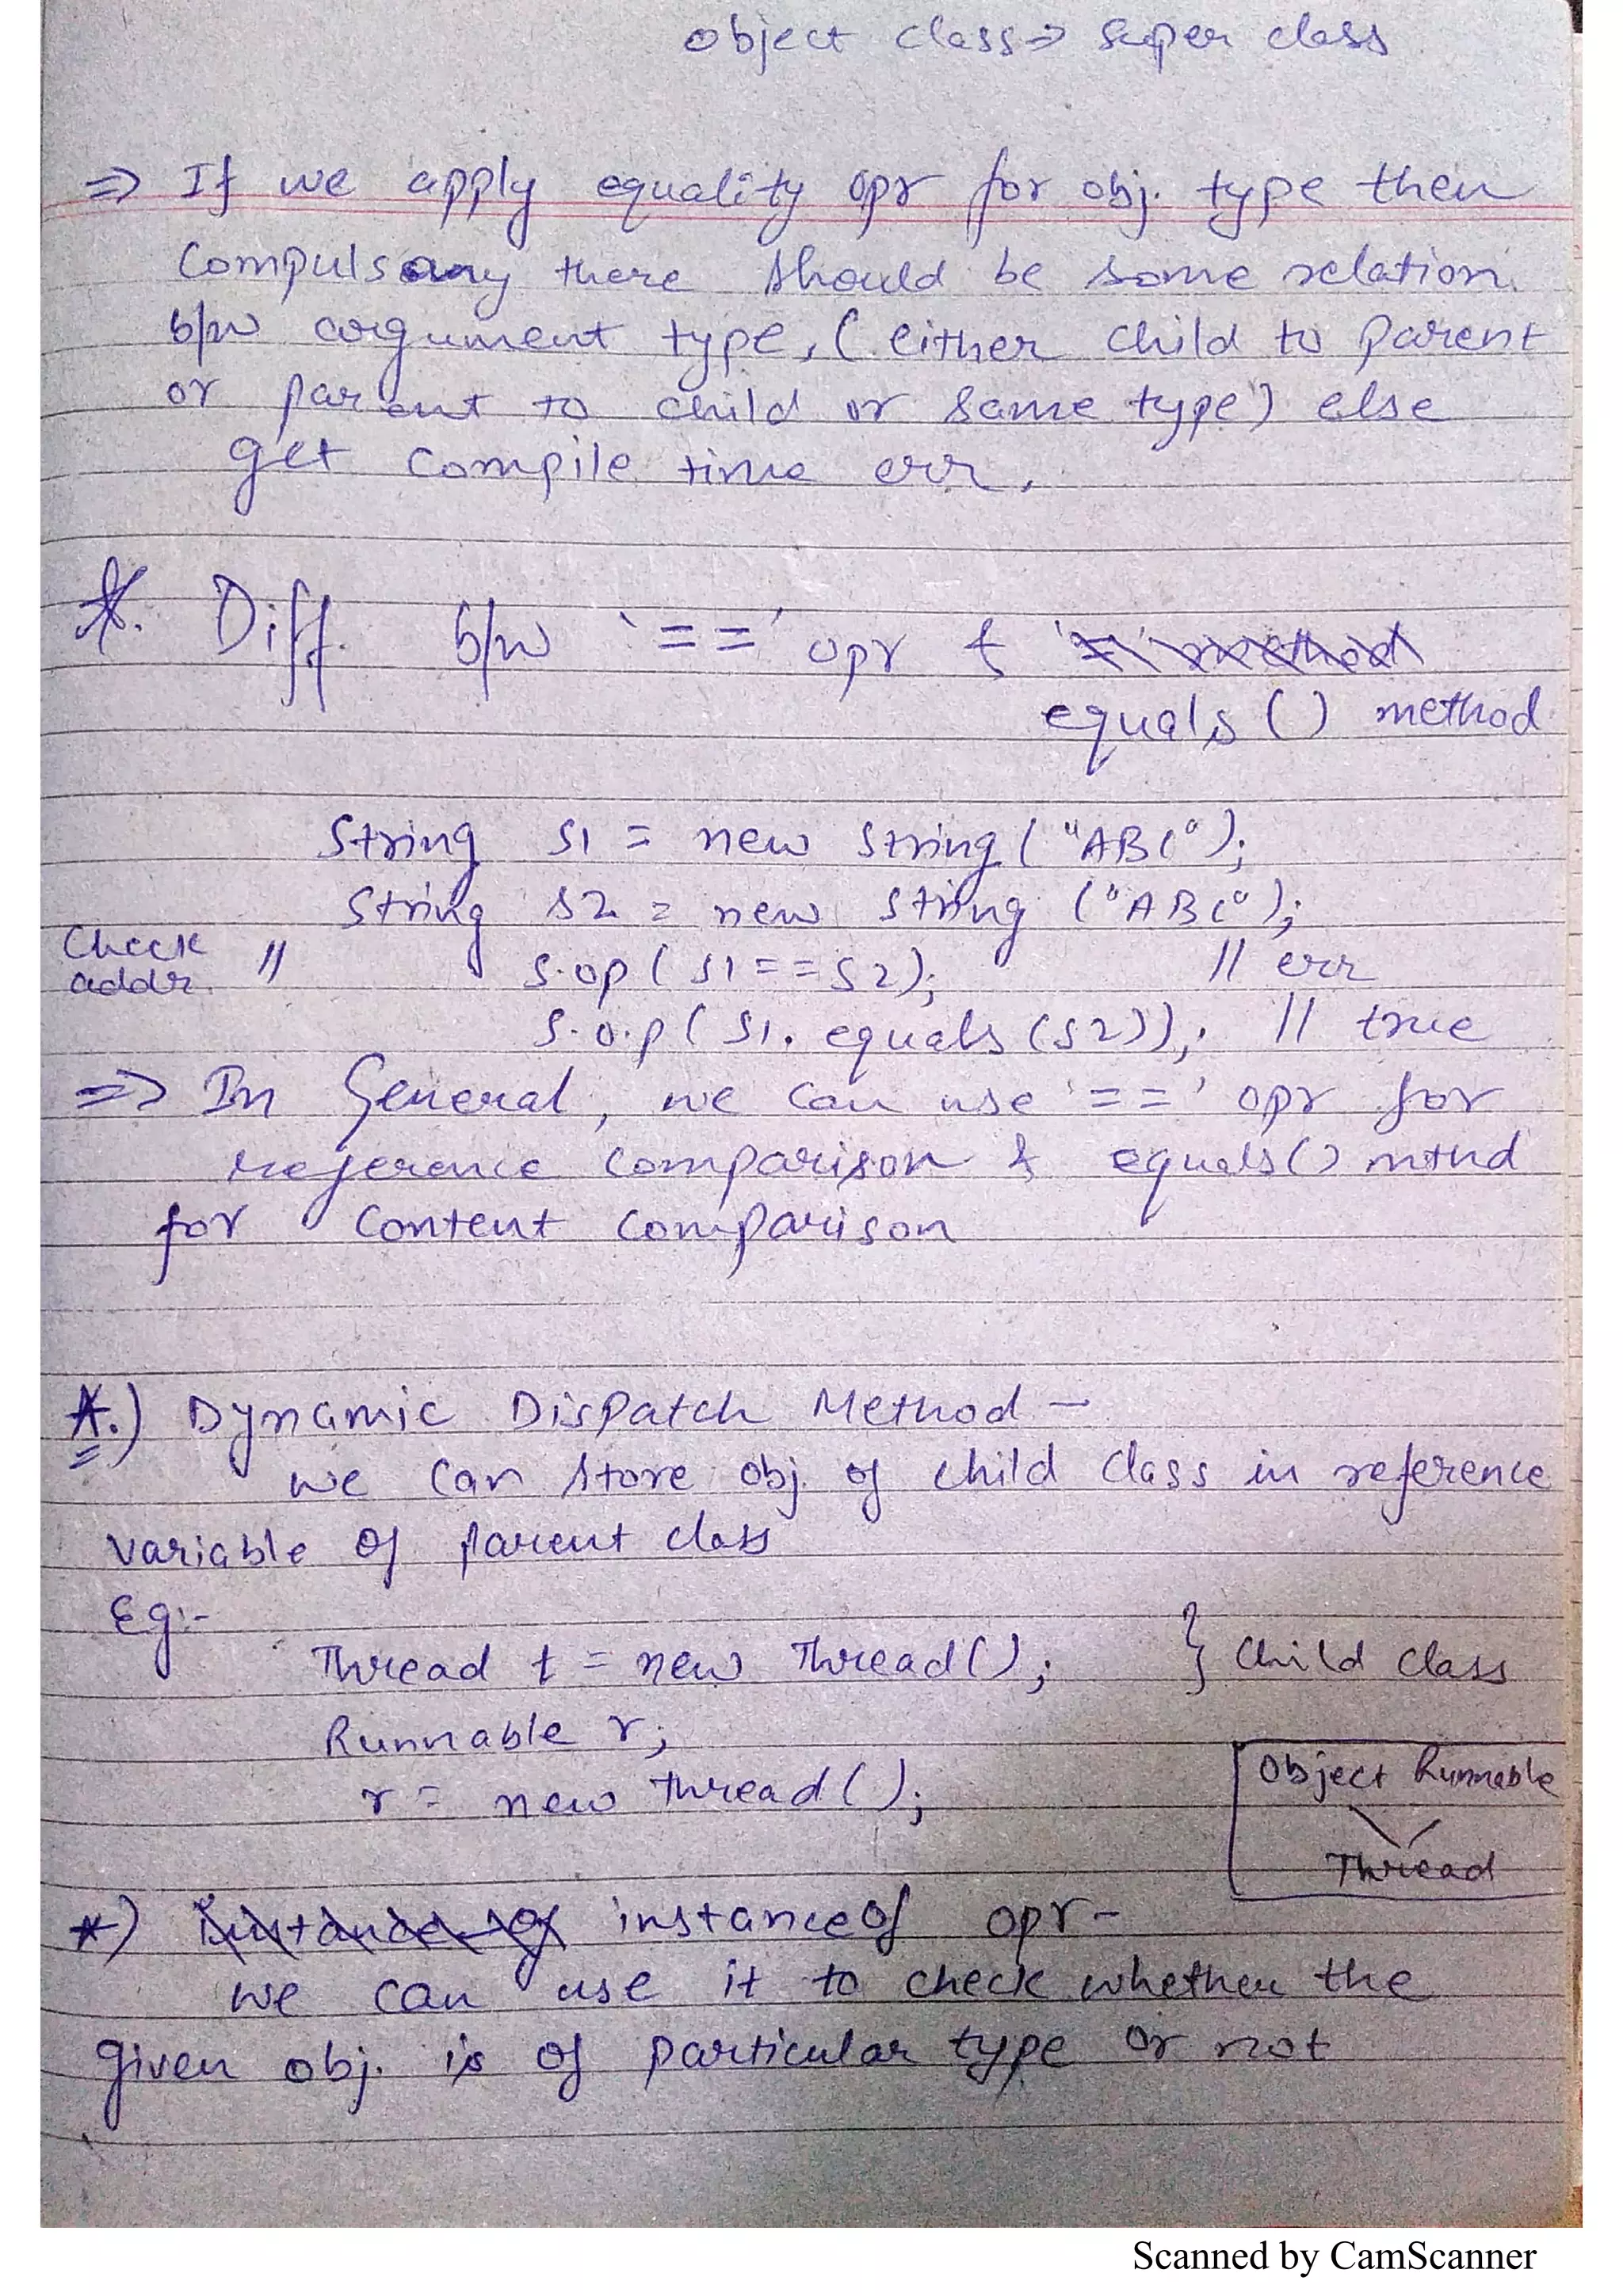 object class => super class
=> If we apply equality opr for obj. type then
Compulsory there should be some relation.
b/w argument type, (either child to parent
or parent to child or same type) else
get compile time err.
*. Diff. b/w '==' opr &
equals () method
String s1 = new String ("ABC");
String s2 = new String ("ABC");
Check addr. // S.op (s1==s2); // err
S.o.p (s1.equals (s2)); // true
=> In General, we can use '==' opr for
reference comparison & equals() mthd
for content comparison
*.) Dynamic Dispatch Method -
we can store obj. of child class in reference
variable of parent class
Eg:-
Thread t = new Thread(); } child class
Runnable r;
r = new Thread();
Object Runnable
Thread
*) instanceof opr-
we can use it to check whether the
given obj. is of particular type or not
Scanned by CamScanner